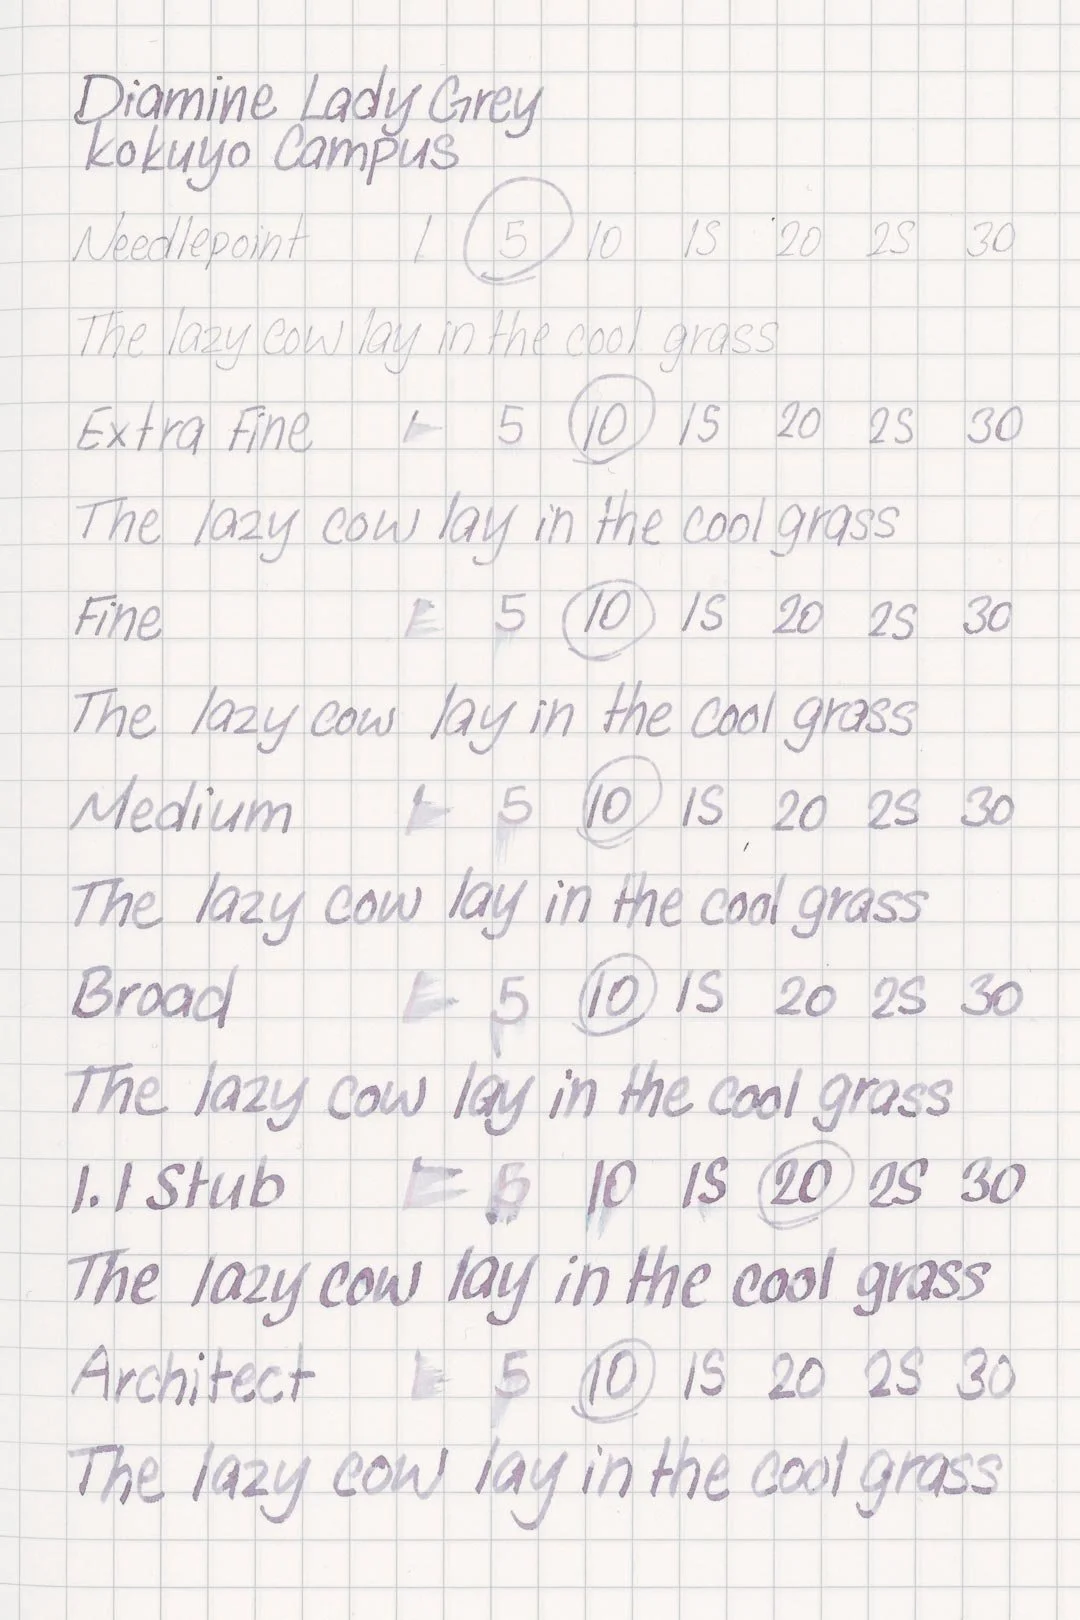 Diamine Lady Grey
Kokuyo Campus
Needlepoint 1 5 10 15 20 25 30
The lazy cow lay in the cool grass
Extra Fine 1 5 10 15 20 25 30
The lazy cow lay in the cool grass
Fine 1 5 10 15 20 25 30
The lazy cow lay in the cool grass
Medium 1 5 10 15 20 25 30
The lazy cow lay in the cool grass
Broad 1 5 10 15 20 25 30
The lazy cow lay in the cool grass
1.1 Stub 1 5 10 15 20 25 30
The lazy cow lay in the cool grass
Architect 1 5 10 15 20 25 30
The lazy cow lay in the cool grass